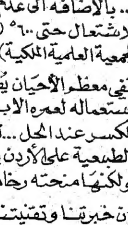 .. بالاضافه الى عد
لاشتعال حتى ٥٦٠٠ (
جمعية العلمية الملكية)
ففي معظم الأحيان يُ
ستعماله لعمره الا
لكسر عند الحل ...
لطبيعية على الأردن
ولكنها منحته رخا
ن خبرتنا وتقنيتنا